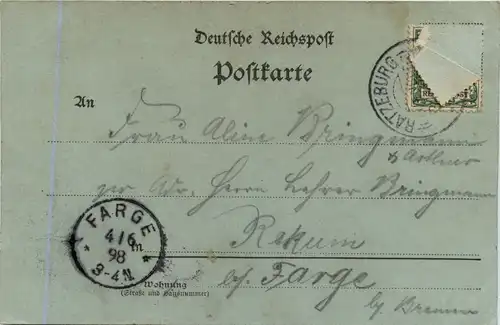 Deutsche Reichspost
Postkarte
RATZEBURG
An
Frau Aline Bringmann
per Adr. Herrn Lehrer Bringmann
FARGE
4/6
98
3-4N.
in
Rekum
bei Farge
Wohnung
(Straße und Hausnummer)
by Bremen